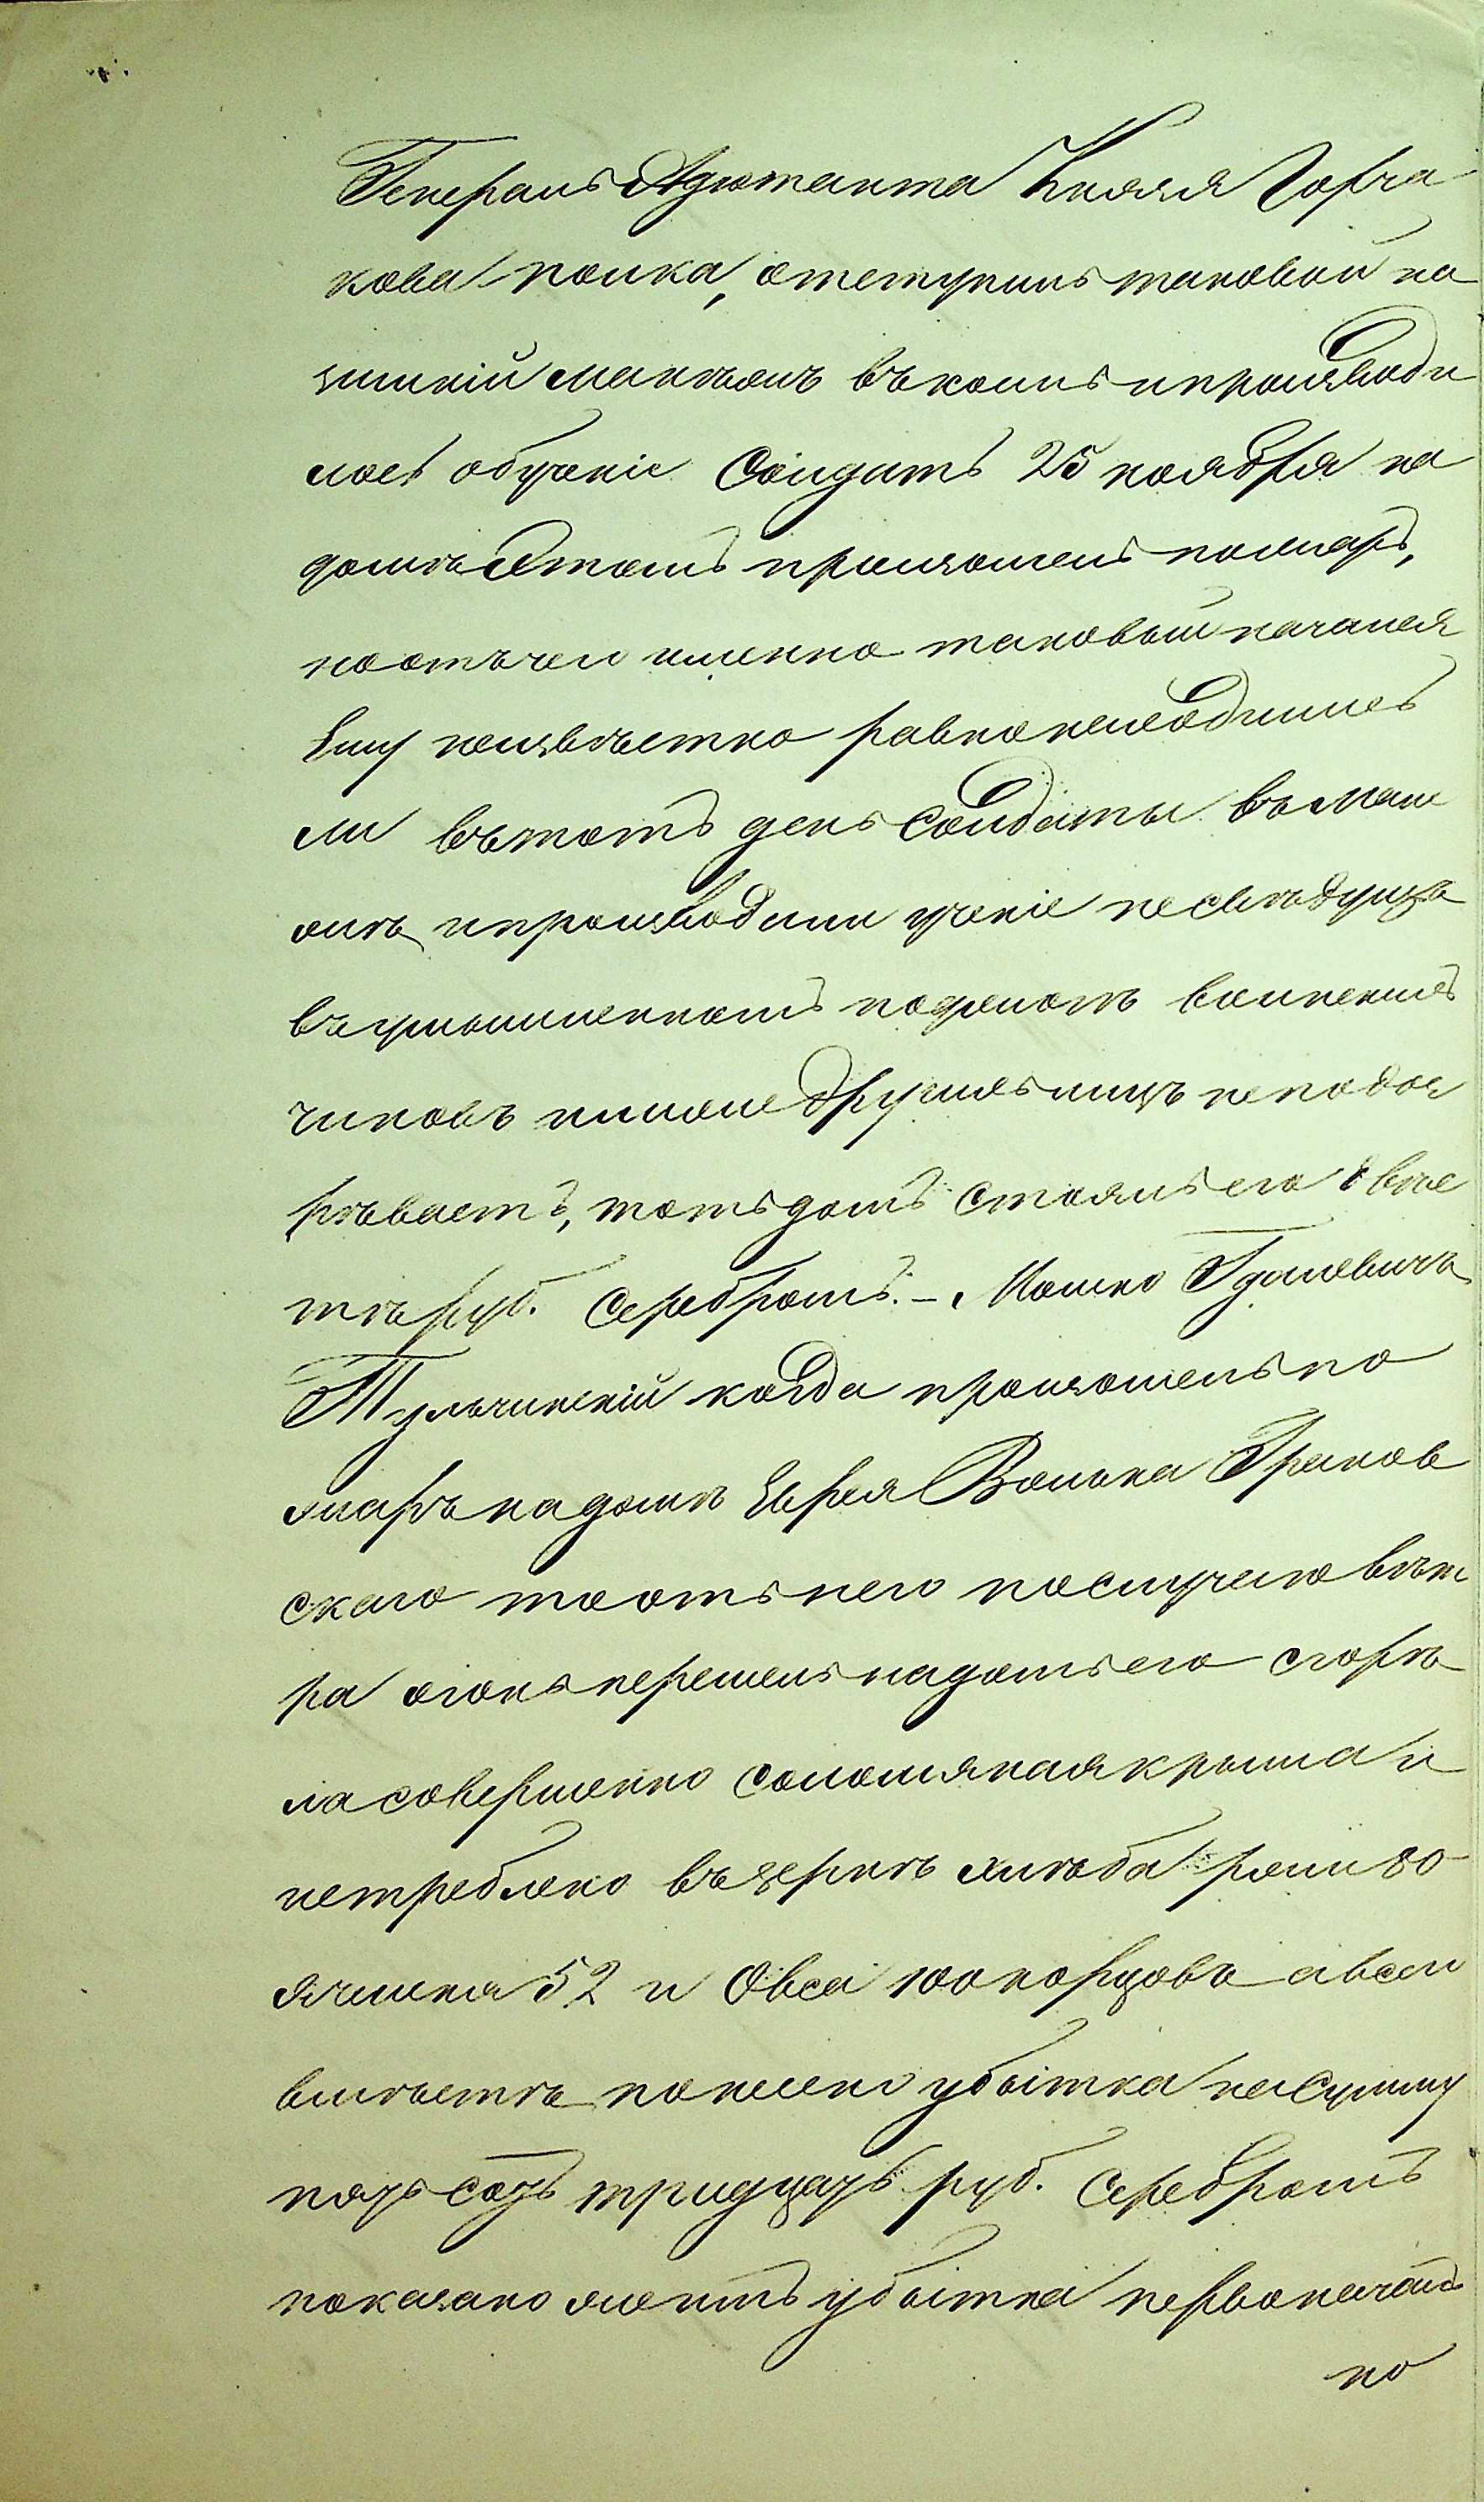 Генералъ Адютанта Князя Горча
кова полка, отступилъ таковой на
зимній манежъ въ коемъ и производи
лось обученіе Солдатъ 25 ноября на
домѣ этомъ произошелъ пожаръ,
но отъ чего именно таковый начался
Ему неизвѣстно равно неходили
ли въ тотъ день Солдаты въ мане
жъ и производили ученіе не свѣдущъ
въ умышленномъ поджогѣ воинскихъ
чиновъ и никого другихъ лицъ неподоз
рѣваетъ, тотъ домъ стоялъ его двѣс
тѣ руб. Серебромъ. – Мошко Гдалевичъ
Тульчинскій когда произошелъ по
жаръ на домѣ Еврея Волька Граков
скаго то отъ него по случаю вѣт
ра огонь перешелъ на домъ его сгорѣ
ла совершенно соломяная крыша и
истреблено въ зернѣ хлѣба ржи 80
ячменя 52 и Овса 100 корцовъ а всего
вмѣстѣ понесено убытка на Сумму
пять сотъ тридцать руб. Серебромъ
показано убытка первоначаль
но